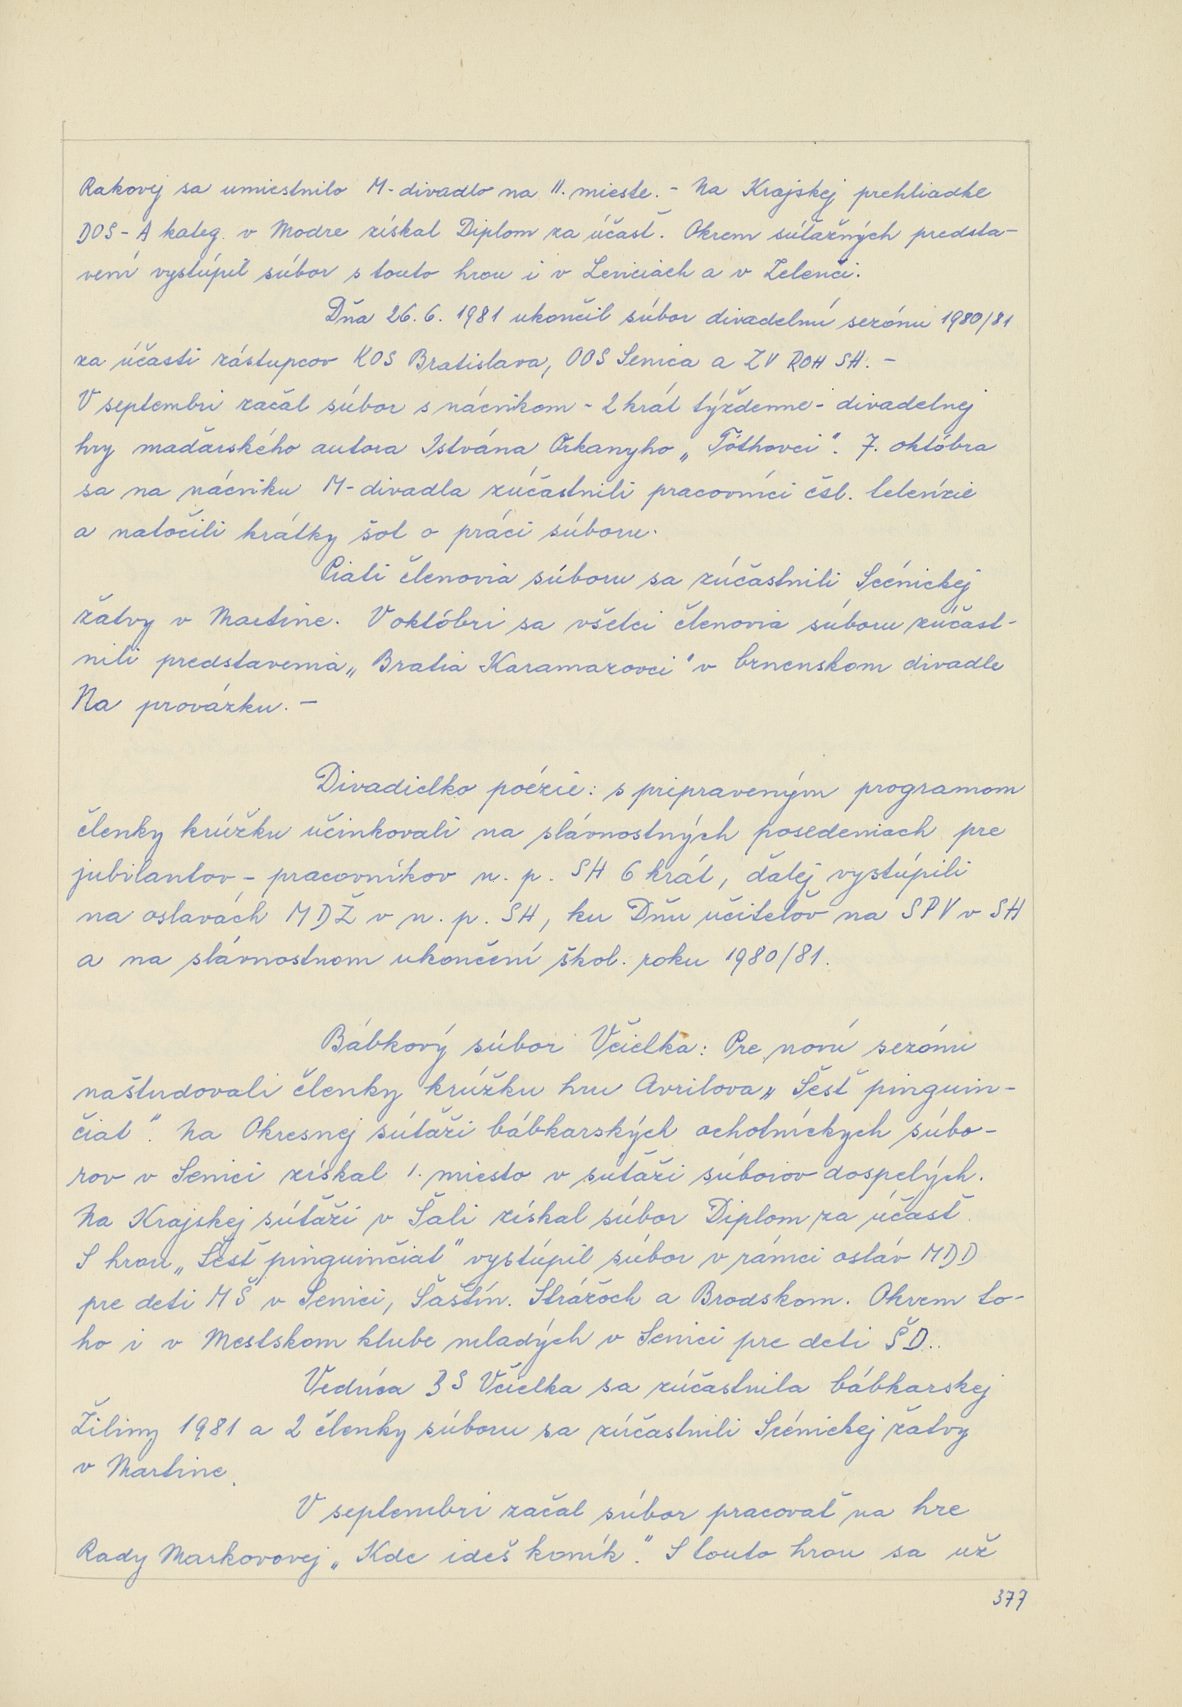 Rakovej sa umiestnilo M-divadlo na II. mieste. - Na Krajskej prehliadke
DOS - A kateg. v Modre získal Diplom za účasť. Okrem súťažných predsta-
vení vystúpil súbor s touto hrou i v Leviciach a v Zelenči.
Dňa 26. 6. 1981 ukončil súbor divadelnú sezónu 1980/81
za účasti zástupcov KOS Bratislava, OOS Senica a ZV ROH SH. -
V septembri začal súbor s nácvikom - 2 krát týždenne - divadelnej
hry maďarského autora Istvána Örkanyho „Tóthovci". 7. októbra
sa na nácviku M-divadla zúčastnili pracovníci čsl. televízie
a natočili krátky šot o práci súboru.
Piati členovia súboru sa zúčastnili Scénickej
žatvy v Martine. V októbri sa všetci členovia súboru zúčast-
nili predstavenia „Bratia Karamazovci" v brnenskom divadle
Na provázku. -
Divadielko poézie: s pripraveným programom
členky krúžku učinkovali na slávnostných posedeniach pre
jubilantov - pracovníkov n. p. SH 6 krát, ďalej vystúpili
na oslavách MDŽ v n. p. SH, ku Dňu učiteľov na SPV v SH
a na slávnostnom ukončení škol. roku 1980/81.
Bábkový súbor Včielka: Pre novú sezónu
naštudovali členky krúžku hru Avrilova „Šesť pinguin-
čiat". Na Okresnej súťaži bábkarských ochotníckych súbo-
rov v Senici získal 1. miesto v suťaži súborov dospelých.
Na Krajskej súťaži v Šali získal súbor Diplom za účasť.
S hrou „Šesť pinguinčiat" vystúpil súbor v rámci osláv MDD
pre deti MŠ v Senici, Šaštín. Strážoch a Brodskom. Okrem to-
ho i v Mestskom klube mladých v Senici pre deti ŠD..
Vedúca BS Včielka sa zúčastnila bábkarskej
Žiliny 1981 a 2 členky súboru sa zúčastnili Scénickej žatvy
v Martine.
V septembri začal súbor pracovať na hre
Rady Markovovej „Kde ideš koník". S touto hrou sa už
377